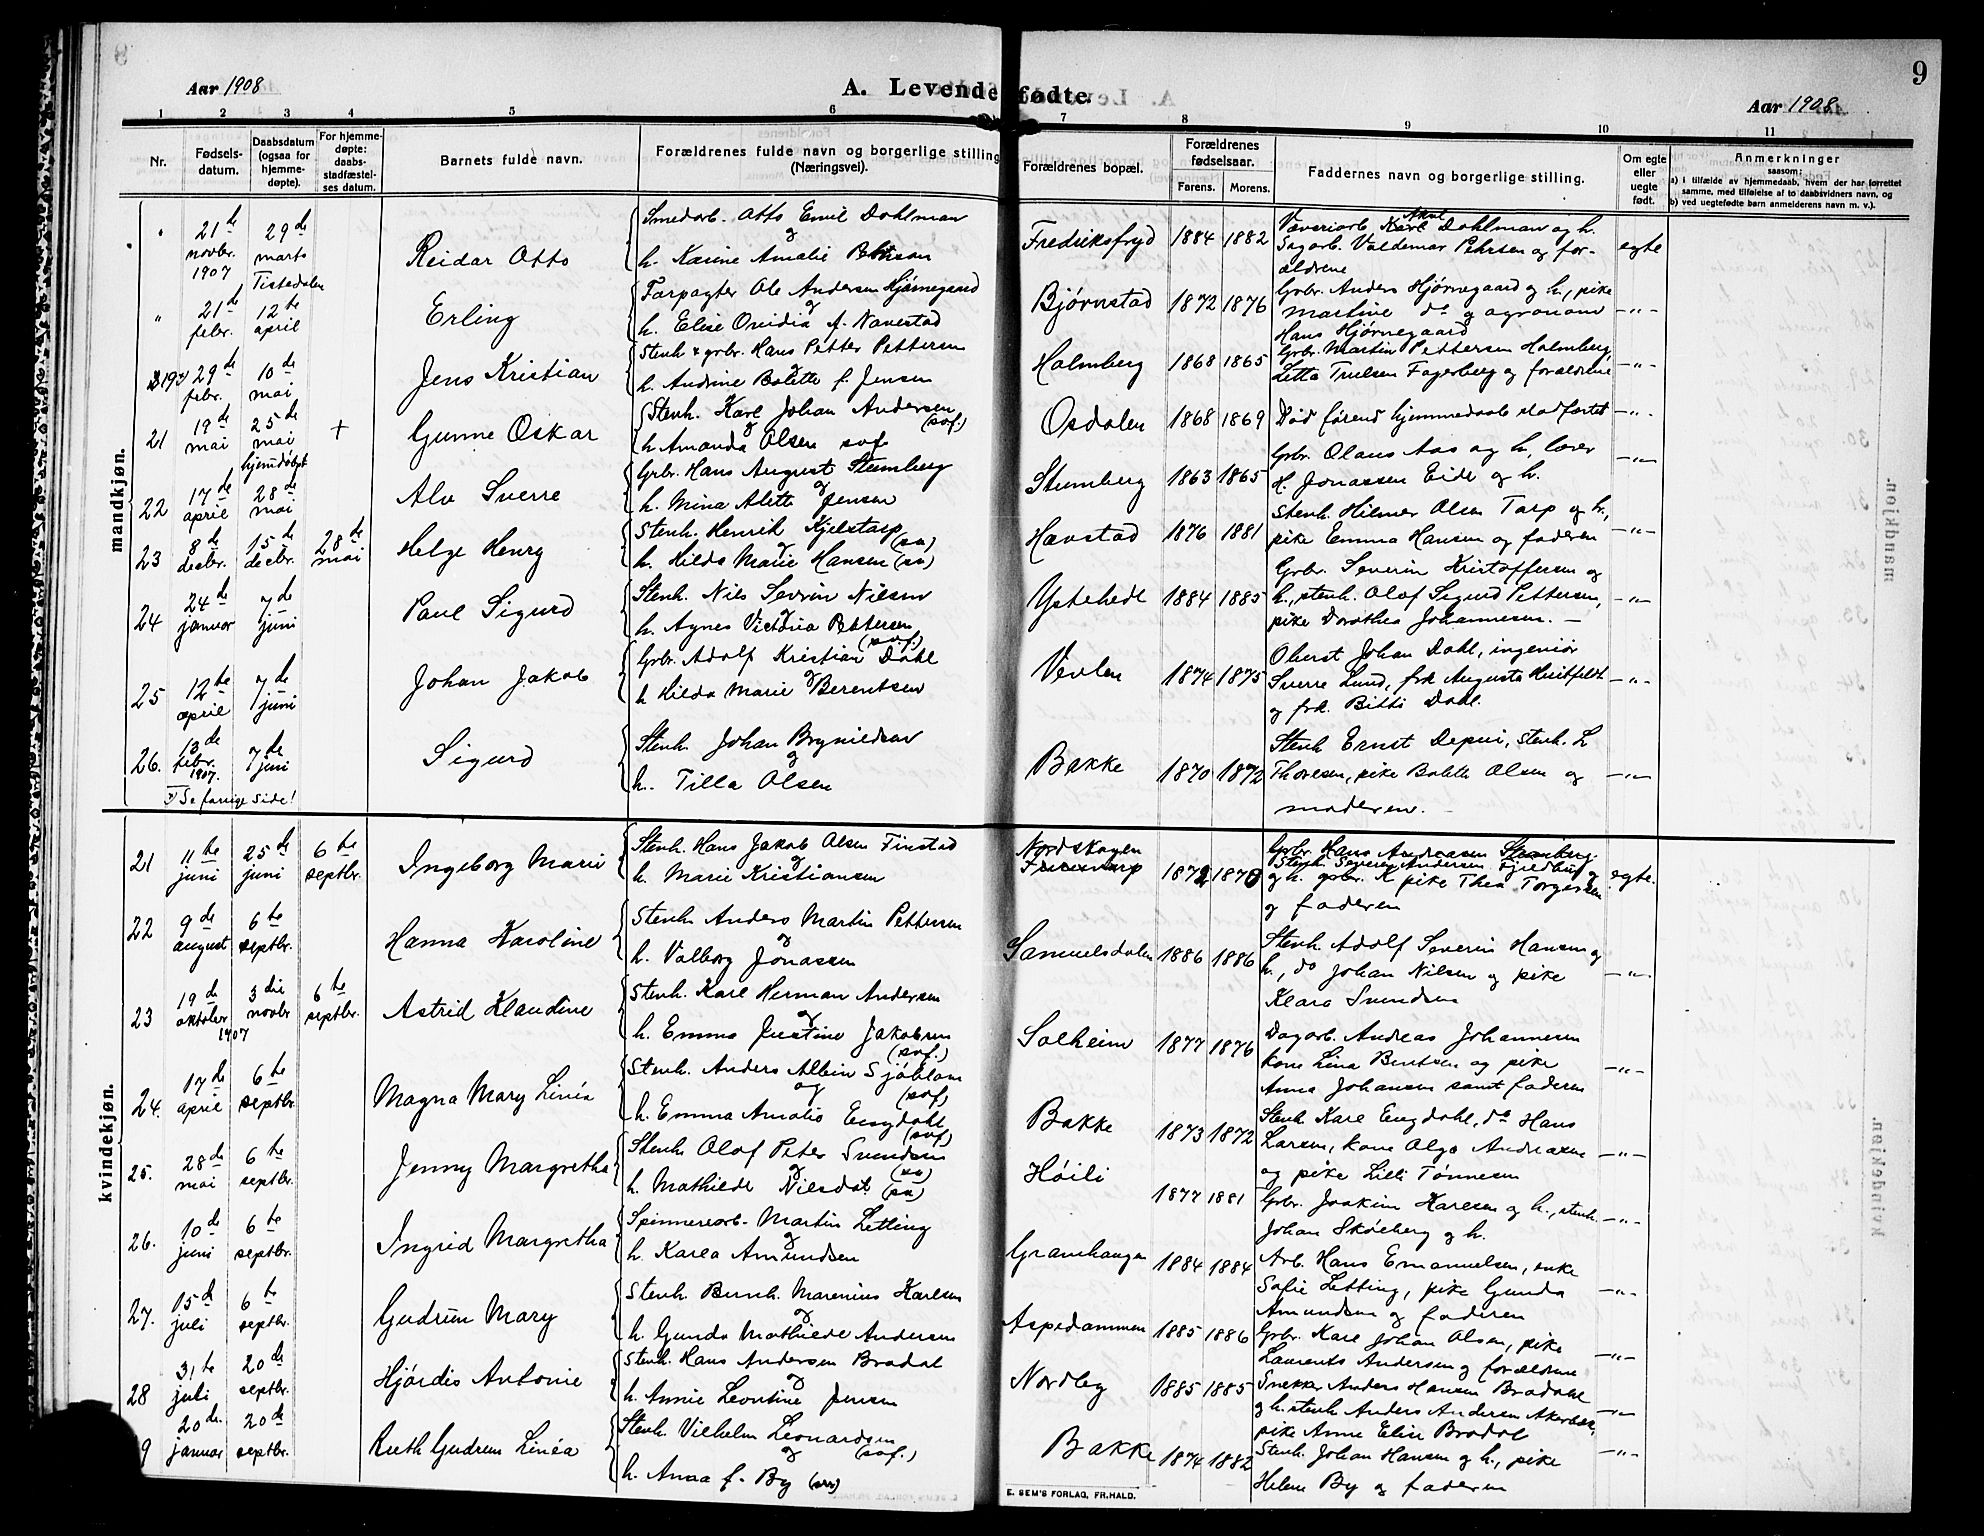 9
Aar 1908
A. Levendefødte.
Aar 1908
1 2 3 4 5 6 7 8 9 10 11
Nr.
Fødsels-
datum.
Daabsdatum
(ogsaa for
hjemme-
døpte).
For hjemme-
døpte:
daabs-
stadfæstel-
ses datum.
Barnets fulde navn.
Forældrenes fulde navn og borgerlige stilling
(Næringsvei).
Forældrenes bopæl.
Forældrenes
fødselsaar.
Farens. Morens.
Faddernes navn og borgerlige stilling.
Om egte
eller
uegte
født.
Anmerkninger
saasom:
a) i tilfælde av hjemmedaab, hvem der har forrettet
samme, med tilføielse af to daabsvidners navn, og
b) ved uegtefødte børn anmelderens navn m. v.).
mandkjøn.
" 21de novbr. 1907 29de marts Tistedalen
Reidar Otto
Smedarb. Otto Emil Dahlman
og
h. Karine Amalie
Fredriksfryd 1884 1882
Væveriarb. Karl Dahlman og h.
Sagarb. Valdemar Pehrsen og for-
ældrene
egte
" 21de febr. 12te april
Erling
Forpagter Ole Andersen Hjørnegaard
og
h. Elise Ovidia f. Navestad
Bjørnstad 1872 1876
Grbr. Anders Hjørnegaard og h., pike
Martine do og agronom
Hans Hjørnegaard
-"-
29de febr. 10de mai
Jens Kristian
Stenh. & grbr. Hans Petter Pettersen
og
h. Andrine Bolette f. Jensen
Holmberg 1868 1865
Grbr. Martin Pettersen Holmberg,
Letta Truelsen Fagerberg og forældrene
-"-
21 19de mai 25de mai hjemdøbt +
Gunne Oskar
Stenh. Karl Johan Andersen
og (svf.)
h. Amanda Olsen svf
Osdalen 1868 1869
Død førend hjemmedaab stadfæstet
-"-
22 17de april 28de mai
Alv Sverre
Grbr. Hans August Stumberg
og
h. Mina Alette Jensen
Stumberg 1863 1865
Grbr. Olaus Aas og h, lærer
H. Jonassen Eide og h.
-"-
23 8de decbr. 15de decbr. 28de mai
Helge Henry
Stenh. Henrik Kjelstarp
og
h. Hilda Marie Hansen
Havstad 1876 1881
Stenh. Hilmer Olsen Torp og h.,
pike Emma Hansen og faderen
-"-
24 24de januar 7de juni
Paul Sigurd
Stenh. Nils Sevrin Nilsen
og
h. Agnes Victoria Pettersen
(svf.)
Ystehede 1884 1885
Grbr. Severin Kristoffersen og
h., stenh. Olof Sigurd Pettersen,
pike Dorothea Johannesen. –
-"-
25 12te april 7de juni
Johan Jakob
Grbr. Adolf Kristian Dahl
og
h Hilda Marie Berentsen
Vevlen 1874 1875
Oberst Johan Dahl, ingeniør
Sverre Lund, frk Augusta Huitfeldt
og frk. Bitti Dahl.
-"-
26. 13de febr. 1907. 7de juni
Sigurd
Stenh. Johan Brynildsen
og
h. Tilla Olsen
Bakke 1870 1872
Stenh Ernst Depui, stenh. L
Thoresen, pike Bolette Olsen og
moderen. –
-"-
Se forrige side!
kvindekjøn.
21 11te juni 25de juni 6te septbr.
Ingeborg Marie
Stenh. Hans Jakob Olsen Finstad
og
h. Marie Kristiansen
Nordskogen
1872 1870
Grbr. Hans Andreasen
Stenh Søren Andersen
og h. grbr. K pike Thea Torgersen
og faderen
egte.
22 9de august 6te septbr.
Hanna Karoline
Stenh. Anders Martin Pettersen
og
h. Valborg Jonassen
Samuelsdalen 1886 1886
Stenh. Adolf Severin Hansen og
h., do Johan Nilsen og pike
Klara Svendsen
-"-
23 19de oktober 1907 3die novbr 6te septbr.
Astrid Klaudine
Stenh. Karl Herman Andersen
og
h. Emma Justine Jakobsen
(svf.)
Solheim 1877 1876
Dagarb. Andreas Johannesen
kone Lina Berntsen og pike
Anna Johansen samt faderen
-"-
24. 17de april 6te septbr.
Magna Mary Linéa
Stenh. Anders Albin Sjøblom
og (svf)
h. Emma Amalia Engdahl
(svf)
Bakke 1873 1872
Stenh Karl Engdahl, do Hans
Larsen, kone Olga Andreasen
og pike Lilli Tønnesen
-"-
25. 28de mai 6te septbr.
Jenny Margretha
Stenh Olof Peter Svendsen
og
h. Mathilde Nilsdal
Høili 1877 1881
Grbr. Joakim Karlsen og h., stenh.
Johan Skøieberg og h.
-"-
26. 10de juni 6te septbr.
Ingrid Margretha
Spinneriarb. Martin Letting
og
h. Karla Amundsen
Granhaugen 1884 1884
Arb. Hans Emanuelsen, enke
Sofie Letting, pike Gunda
Amundsen og faderen
-"-
27. 15d juli 6te septbr.
Gudrun Mary
Stenh. Bernh. Marenius Karlsen
og
h. Gunda Mathilde Andersen
Aspedammen 1885 1886
Grbr. Karl Johan Olsen, pike
Laurents Andersen og forældrene
-"-
28 31te juli 20de septbr.
Hjørdis Antonie
Stenh. Hans Andersen Bradal
og
h. Annie Leontine Jensen
Nordby 1885 1885
Snekker Anders Hansen Bradahl
og h. stenh Anders Andersen
pike Anne Elise Bradal
-"-
9 20de. januar 20de septbr.
Ruth Gudrun Linéa
Stenh. Vilhelm Leonardsen
og (svf.)
h. Anna f. By
Bakke 1874 1882
Stenh. Johan Hansen og h., pike
Helene By og faderen
-"-
E. SEM'S FORLAG, FR.HALD.